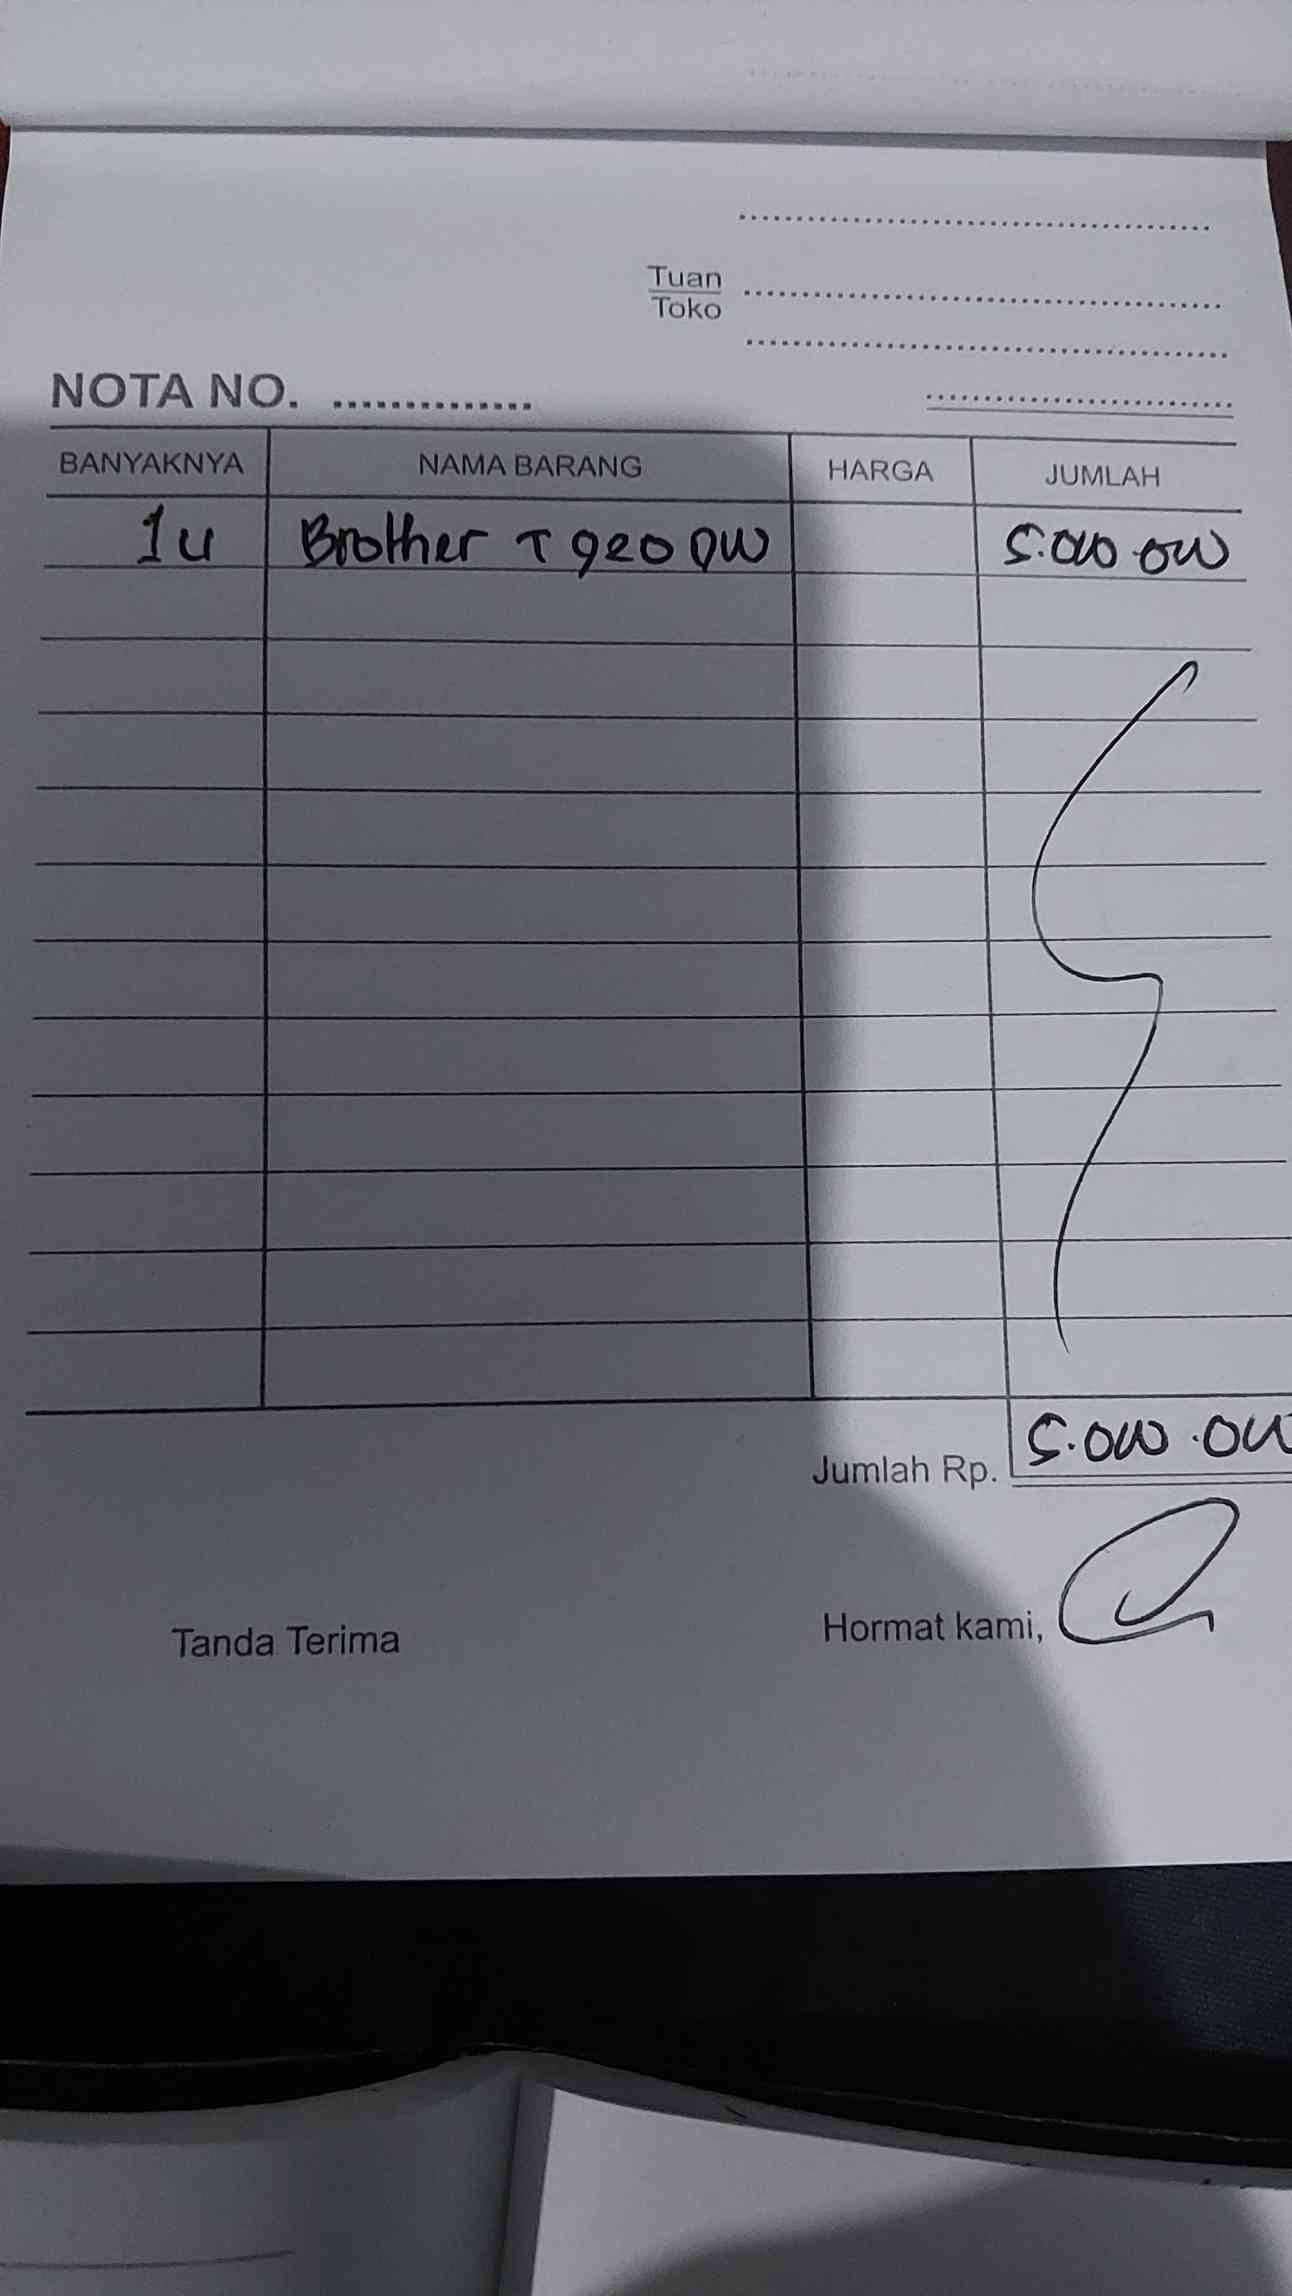 Tuan
Toko
NOTA NO.
BANYAKNYA NAMA BARANG HARGA JUMLAH
1 u Brother T 920 DW 5.000.000
Jumlah Rp. 5.000.000
Tanda Terima Hormat kami,